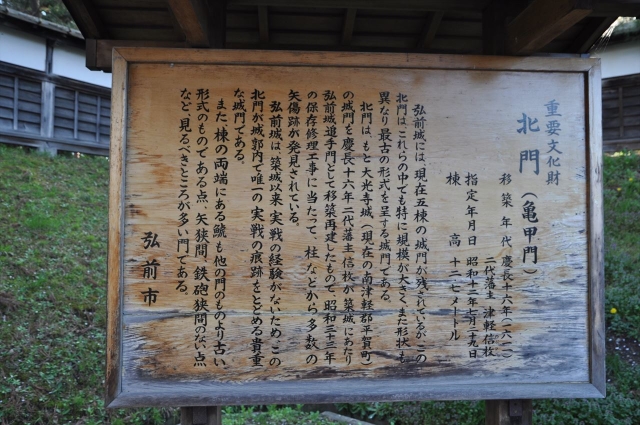 重要文化財
北門（亀甲門）
移築年代 慶長十六年（一六一一）
二代藩主 津軽信枚
指定年月日 昭和十二年七月二十九日
棟高 十二・七メートル
弘前城には、現在五棟の城門が残されているが、この
北門はこれらの中でも特に規模が大きく、また形状も
異なり最古の形式を呈する城門である。
北門は、もと大光寺城（現在の南津軽郡平賀町）
の城門を慶長十六年二代藩主信枚が築城にあたり
弘前城追手門として移築再建したもので、昭和三十三年
の保存修理工事に当たって、柱などから多数の
矢傷跡が発見されている。
弘前城は築城以来、実戦の経験がないため、この
北門が城郭内で唯一の実戦の痕跡をとどめる貴重
な城門である。
また棟の両端にある鯱も他の門のものより古い
形式のものである点、矢狭間、鉄砲狭間のない点
など、見るべきところが多い門である。
弘前市